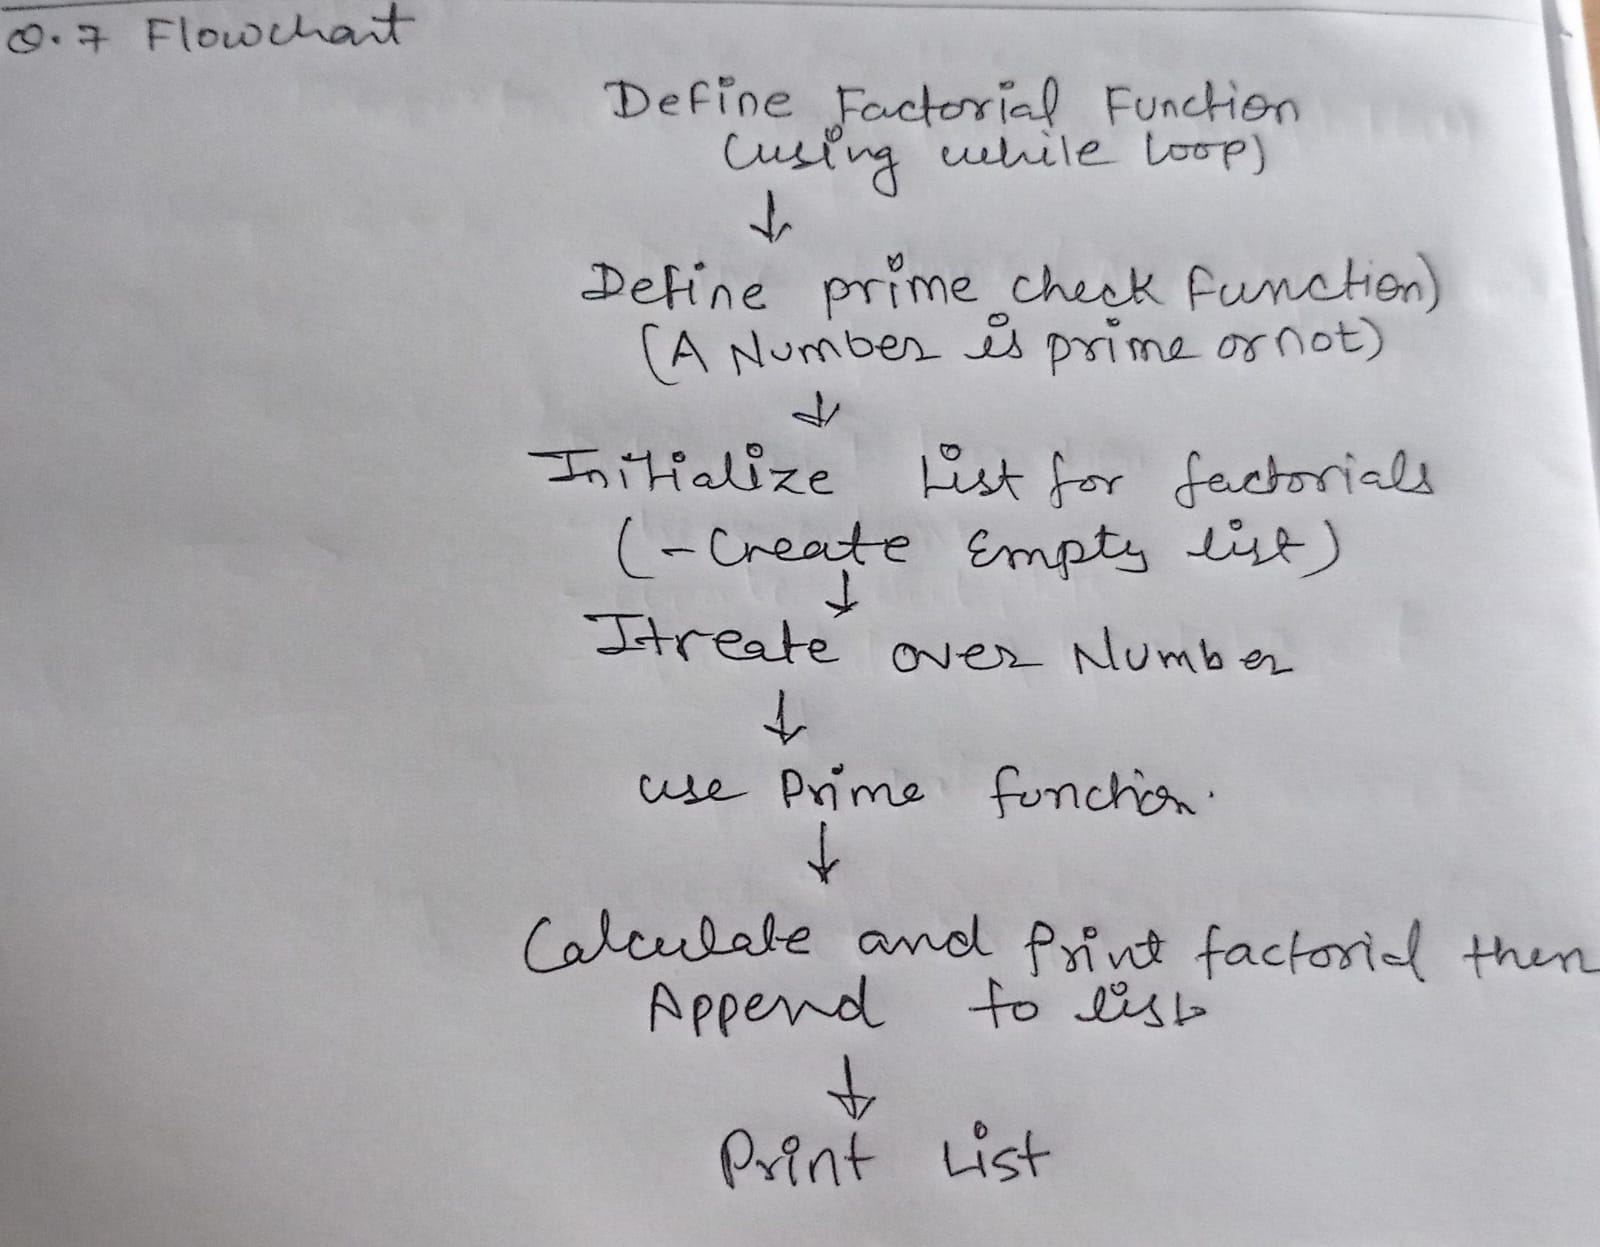 Q.7 Flowchart
Define Factorial Function
(using while loop)
↓
Define prime check function)
(A Number is prime or not)
↓
Initialize List for factorials
(-Create Empty list)
↓
Itreate over Number
↓
use Prime function.
↓
Calculate and Print factorial then
Append to list
↓
Print List